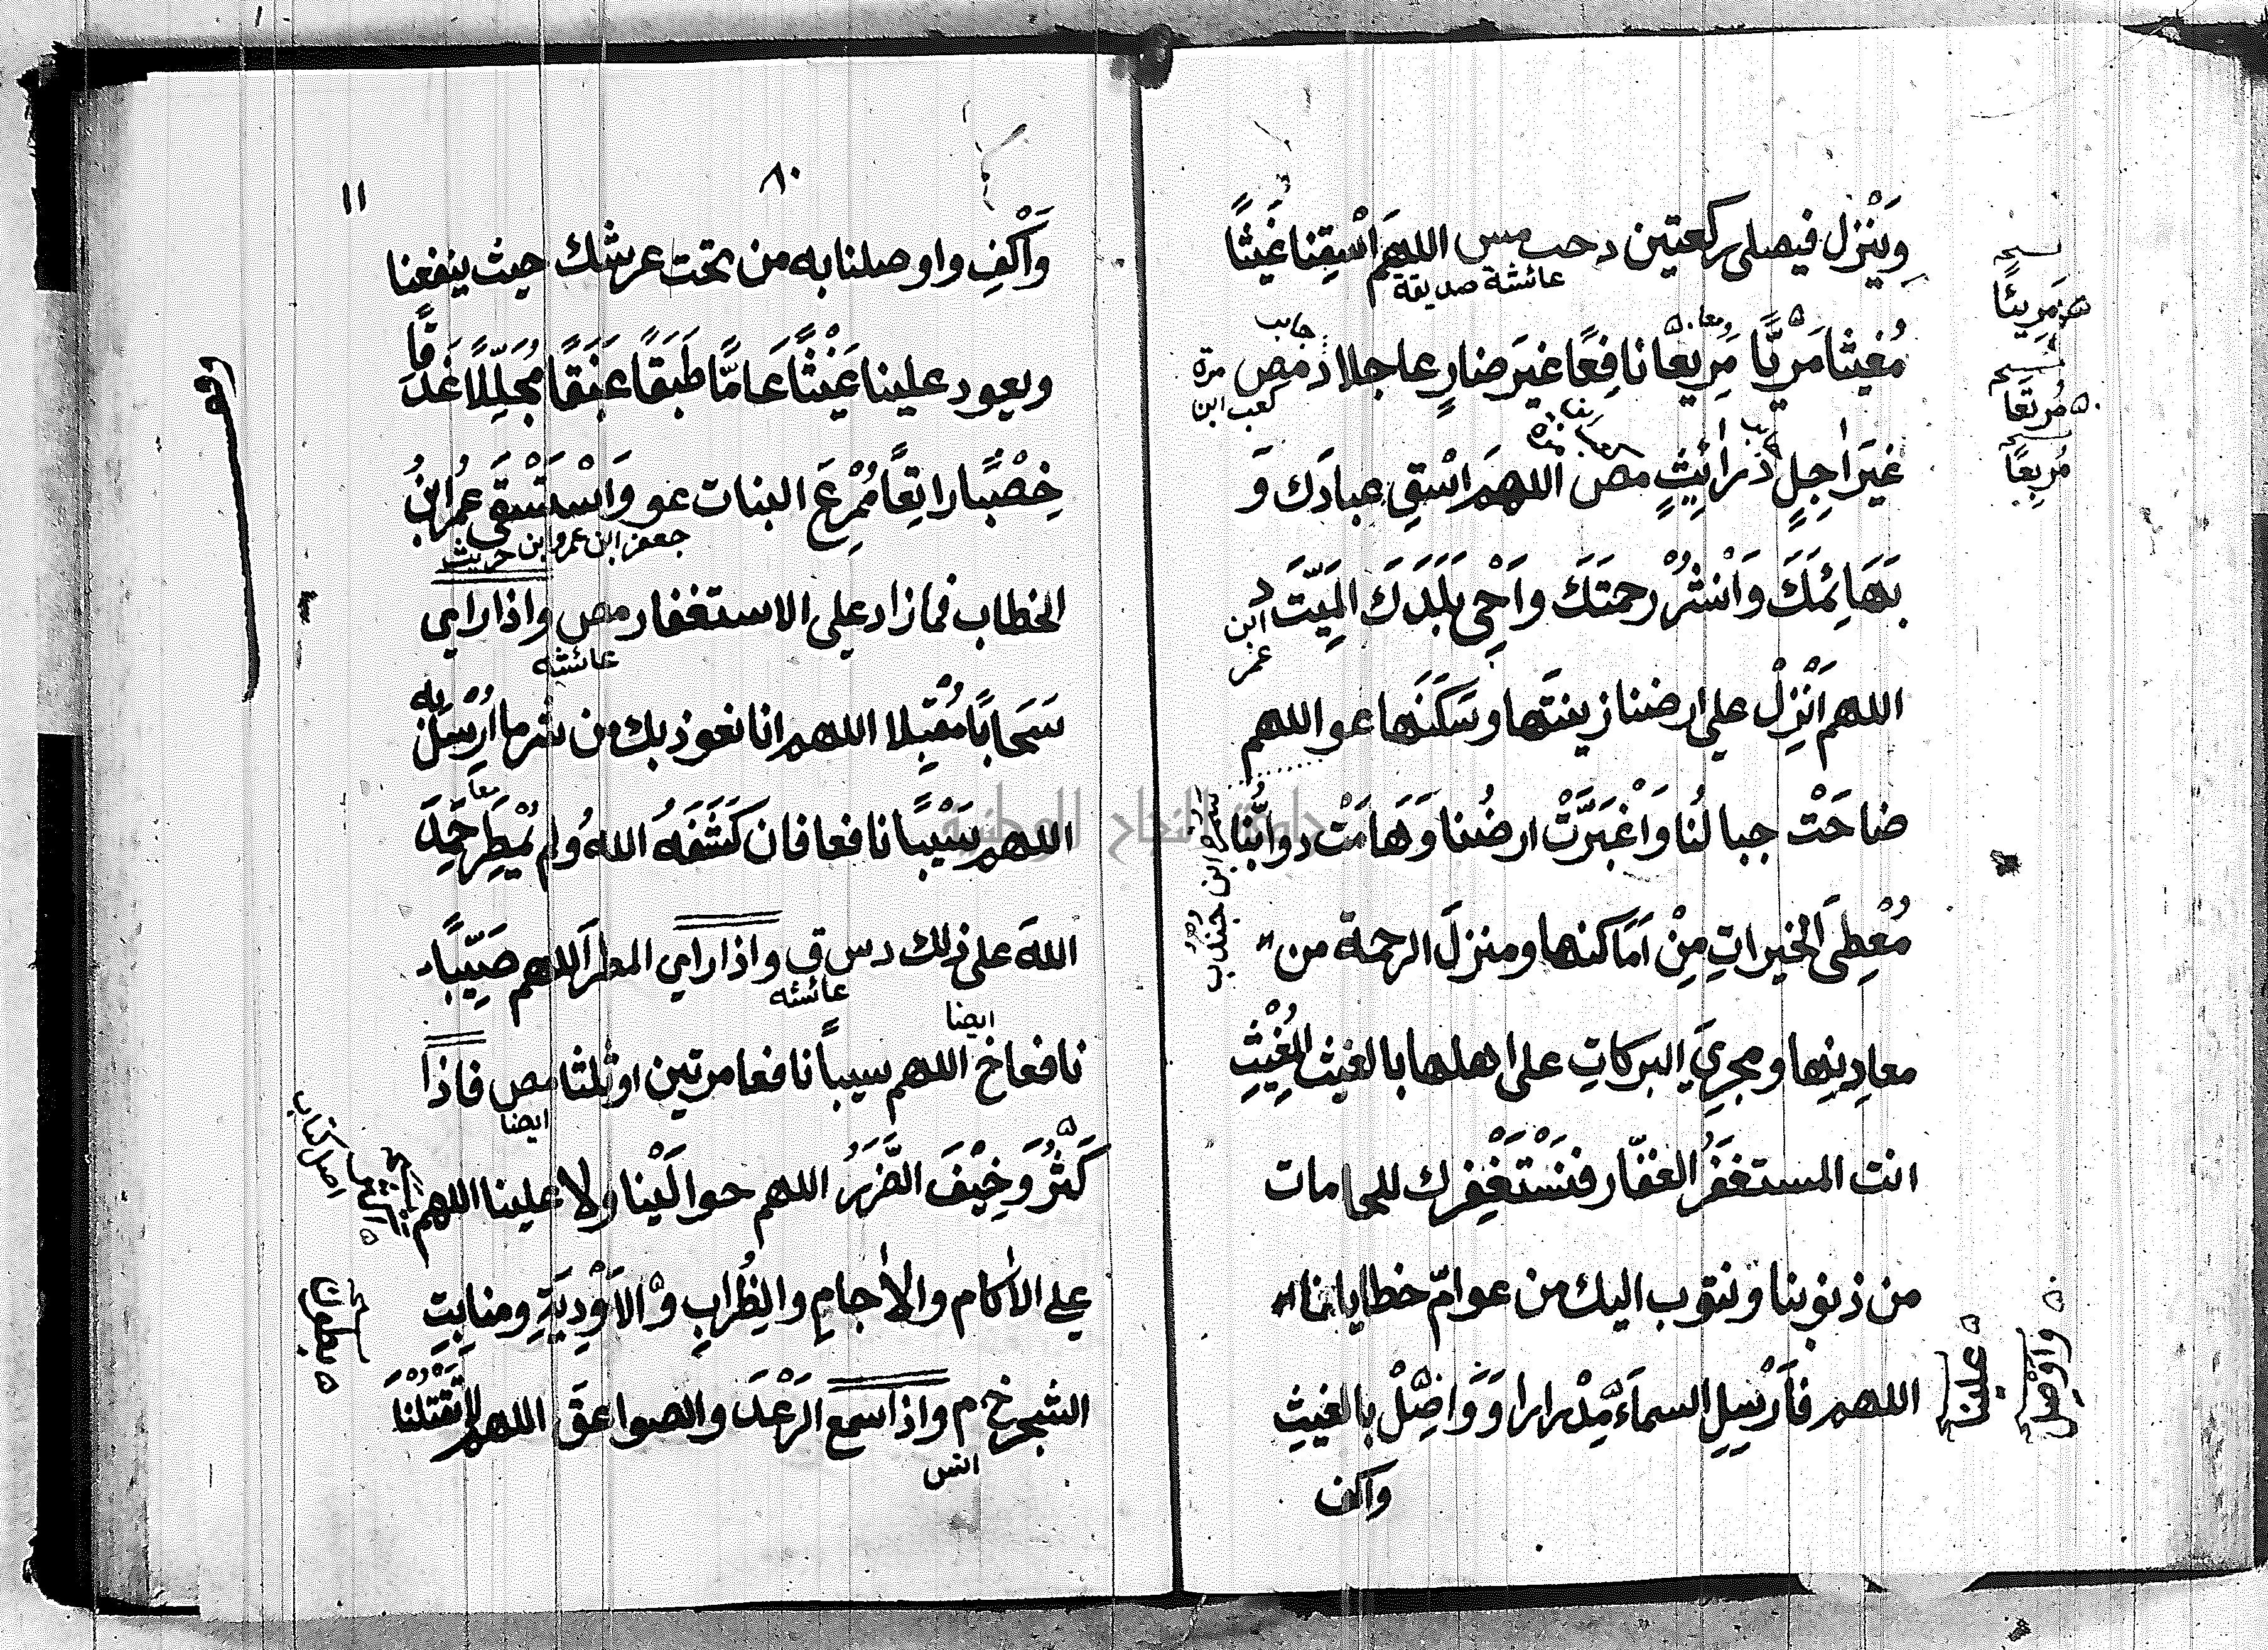 وَيَنْزل فيصلى ركعتين د حب مس اللهم اَسْقِنا غَيثًا
عائشة صديقة
مُغيثا مَريًّا مَرِيعا نافِعًا غيرَ ضارٍ عاجلا د مص
جابر
كعب ابن مرة
غيرَ اٰجِلٍ د رائِثٍ مص اللهمَ اسْقِ عبادَك وَ
بَهَائِمَكَ وَانْشُرْ رحمتَكَ وَاَحْيِ بَلَدَكَ المَيّتَ د
ابن عمر
اللهم اَنْزِلْ على ارضنا زينتَها وسَكَنَها عو اللهم
ضاحَتْ جبالُنا وَاغْبَرَّتْ ارضُنا وَهَامَتْ دوابُّنا
سمرة ابن جندب
مُعْطِىَ الخيراتِ مِنْ اَمَاكنها ومنزلَ الرحمة من
معادِنِها ومجرِيَ البركاتِ على اهلها بالغيث المُغِيْثِ
انت المستغفَرُ الغفّار فنَسْتَغْفِرك للحامات
من ذنوبنا ونتوب اليك من عوامّ خطايانا
اللهم فاَرْسِلِ السماءَ مِدْرارا وَوَاصِلْ بالغيثِ
واكف
نسخه
مَرِيئًا
نسخه
مُرتَعًا
نسخه
مُربِعًا
علينا
وَاوْصِل
٨٠
١١
وَاكْفِ واوصلنا به من تحت عرشك حيث ينفعنا
ويعود علينا غَيْثًا عَامًّا طَبَقًا غَدَقًا مُجَلِّلًا غَدَقًا
خِصْبًا راتِعًا مُمْرِعَ النبات عو وَاسْتَسْقَى عُمرُ ابنُ
جعفر ابن عمرو بن حريث
الخطاب فمازاد على الاستغفار مص واذا راى
عائشه
سَحابًا مُقْبِلا اللهم انا نعوذ بك من شر ما اُرْسِلَ به
اللهم سَيْبًا نافعا فان كَشَفَهُ اللهُ ولم يُمْطِر حَمِدَ
معا
اللهَ على ذلك د س ق واذا راى المطرَ اللهم صَيّبًا
عائشه
نافعا خ اللهم سيبًا نافعا مرتين او ثلثا مص فاذا
ايضا
ايضا
كَثُرَ وَخِيْفَ الضَّرَرُ اللهم حوالَيْنا ولا علينا اللهم
على الاٰكام والاٰجامِ والظِرابِ وَالاَوْدِيَةِ ومنابِتِ
الشجر خ م واذا سمع الرَعْدَ والصواعقَ اللهم لا تَقْتُلْنا
انس
اصل كتاب
بطون